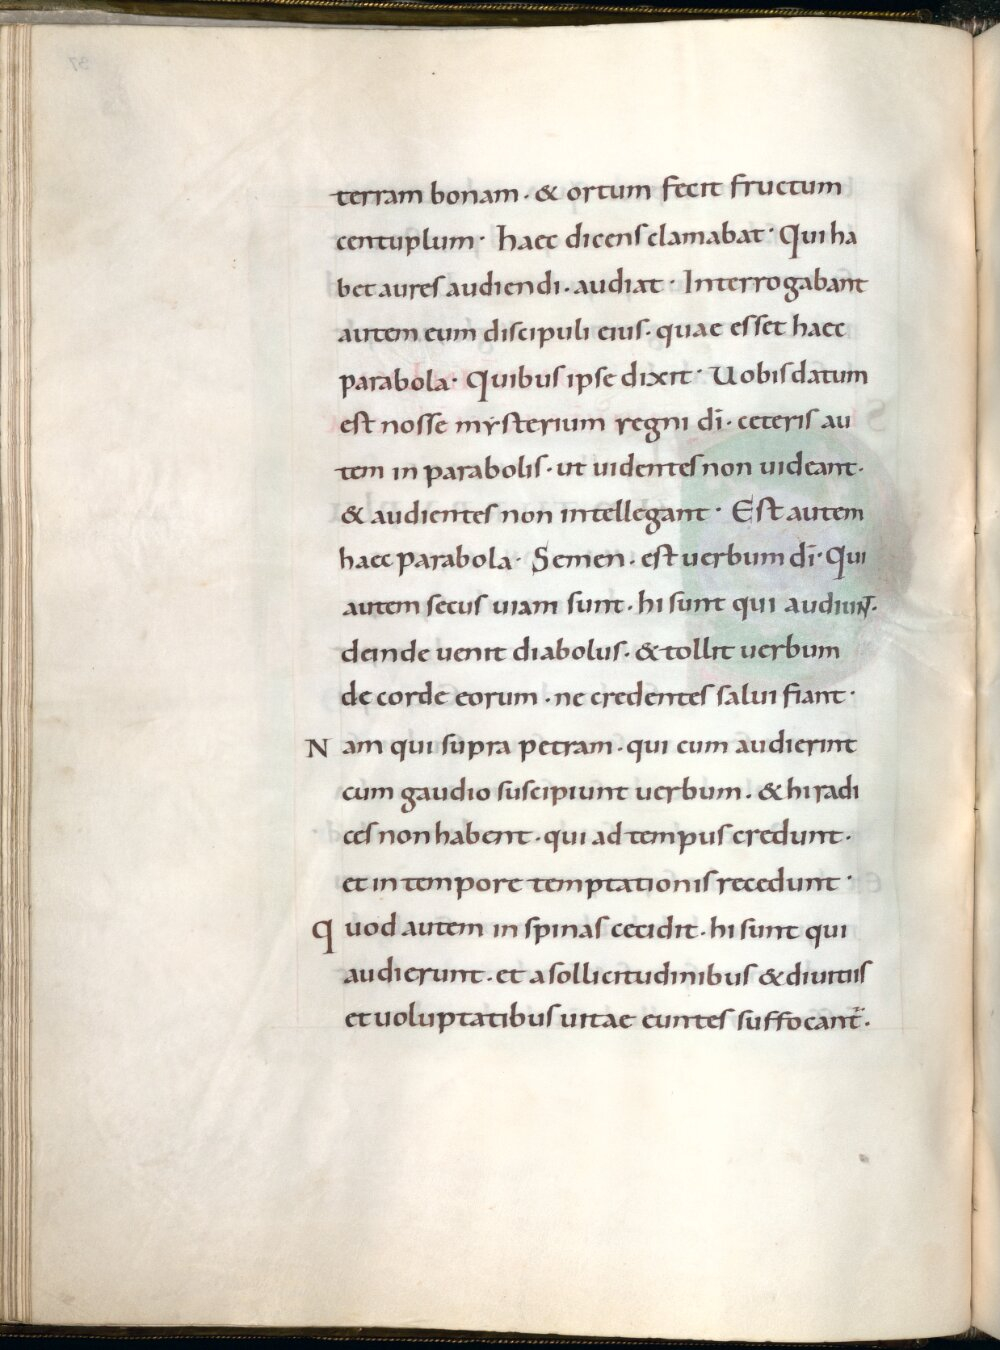 terram bonam · & ortum fecit fructum
centuplum · haec dicens clamabat · Qui ha
bet aures audiendi · audiat · Interrogabant
autem eum discipuli eius · quae esset haec
parabola · Quibus ipse dixit · Uobis datum
est nosse mysterium regni dī · ceteris au
tem in parabolis · ut uidentes non uideant ·
& audientes non intellegant · Est autem
haec parabola · Semen · est uerbum dī · Qui
autem secus uiam sunt · hi sunt qui audiunt ·
deinde uenit diabolus · & tollit uerbum
de corde eorum · ne credentes salui fiant ·
Nam qui supra petram · qui cum audierint
cum gaudio suscipiunt uerbum · & hi radi
ces non habent · qui ad tempus credunt ·
et in tempore temptationis recedunt ·
Quod autem in spinas cecidit · hi sunt qui
audierunt · et a sollicitudinibus & diuitiis
et uoluptatibus uitae euntes suffocant̄ ·